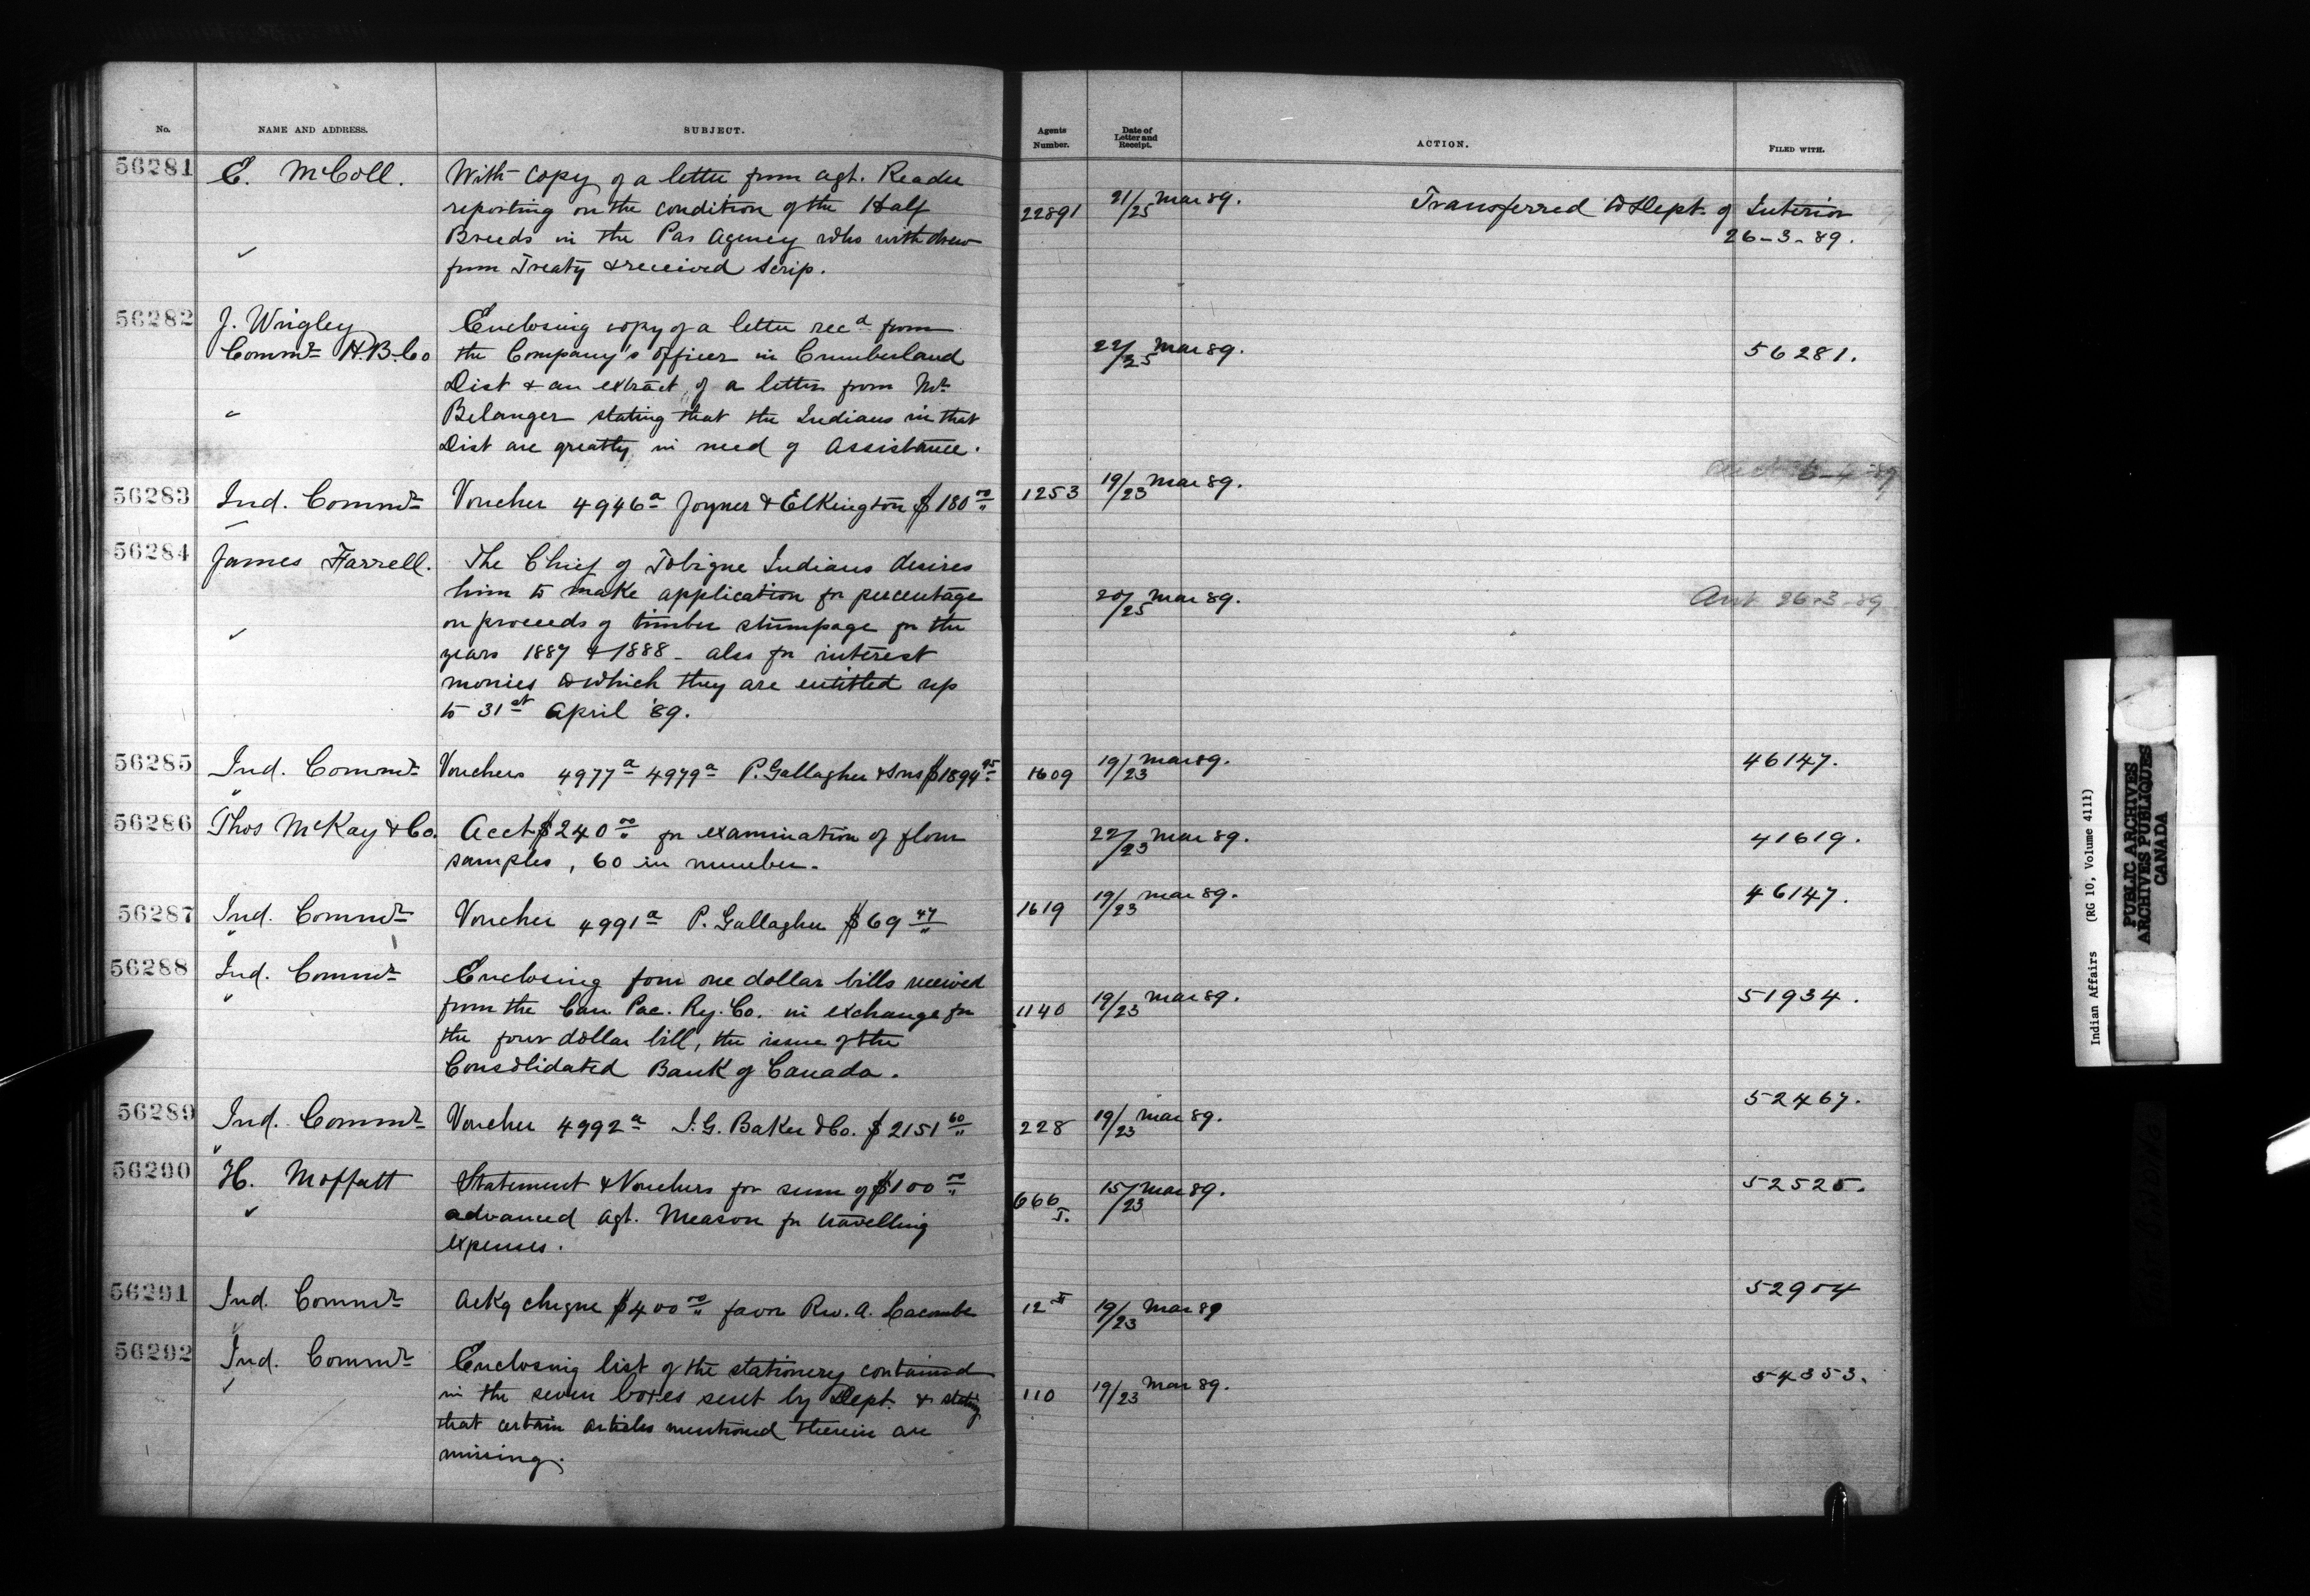 No. NAME AND ADDRESS. SUBJECT. Agents Number. Date of Letter and Receipt. ACTION. FILED WITH.
56281 E. McColl. With copy of a letter from Agt. Reader
reporting on the condition of the Half 22891 21/25 Mar 89. Transferred to Dept. of Interior
Breeds in the Pas Agency who withdrew 26-3-89.
from Treaty & received Scrip.
56282 J. Wrigley Enclosing copy of a letter recd from
Commr H.B.Co the Company's officer in Cumberland 22/25 Mar 89. 56281.
Dist & an extract of a letter from Mr
Belanger stating that the Indians in that
Dist are greatly in need of Assistance.
56283 Ind. Commr Voucher 4946a Joyner & Elkington $180 00 1253 19/23 Mar 89. 6-4-89
56284 James Farrell. The Chief of Tobique Indians desires
him to make application for percentage 20/25 Mar 89. Ansd 26-3-89
on proceeds of timber stumpage for the
years 1887 & 1888 - also for interest
monies to which they are entitled up
to 31st April '89.
56285 Ind. Commr Vouchers 4977a 4979a P. Gallagher & Sns $1894 95 1609 19/23 Mar 89. 46147.
56286 Thos McKay & Co. Acct $240 00 for examination of flour 22/23 Mar 89. 41619.
samples, 60 in number.
56287 Ind. Commr Voucher 4991a P. Gallagher $69 47 1619 19/23 Mar 89. 46147.
56288 Ind. Commr Enclosing four one dollar bills received
from the Can. Pac. Ry. Co. in exchange for 1140 19/23 Mar 89. 51934.
the four dollar bill, the issue of the
Consolidated Bank of Canada.
56289 Ind. Commr Voucher 4992a I. G. Baker & Co. $2151 60 228 19/23 Mar 89. 52467.
56290 H. Moffatt Statement & Vouchers for sum of $100 00 666 I. 15/23 Mar 89. 52525.
advanced Agt. Meason for travelling
expenses.
56291 Ind. Commr Ackg cheque $400 00 favor Rev. A. Lacombe 12 II 19/23 Mar 89 52904
56292 Ind. Commr Enclosing list of the stationery contained
in the seven boxes sent by Dept. & stating 110 19/23 Mar 89. 54353.
that certain articles mentioned therein are
missing.
Indian Affairs (RG 10, Volume 4111)
PUBLIC ARCHIVES
ARCHIVES PUBLIQUES
CANADA